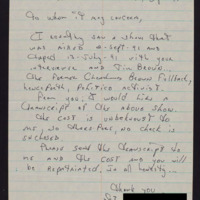 To whom it may concern,
I recently saw a show that
was aired -Sept-91 and
taped 12-July-91 with your
and Jim Brown.
the Former Cleveland Brown Fullback,
Political Activist.
From you, I would like a
transcript of the above show.
The cost is unbeknownst to
me, no check is
enclosed.
Please send the transcript to
me and the cost and you will
be in all honesty...
thank you